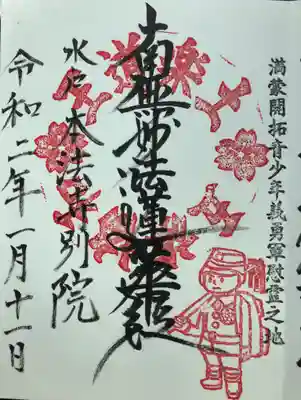 満蒙開拓青少年義勇軍慰霊之地
南無妙法蓮華経
水戸本法寺別院
令和二年一月十一日